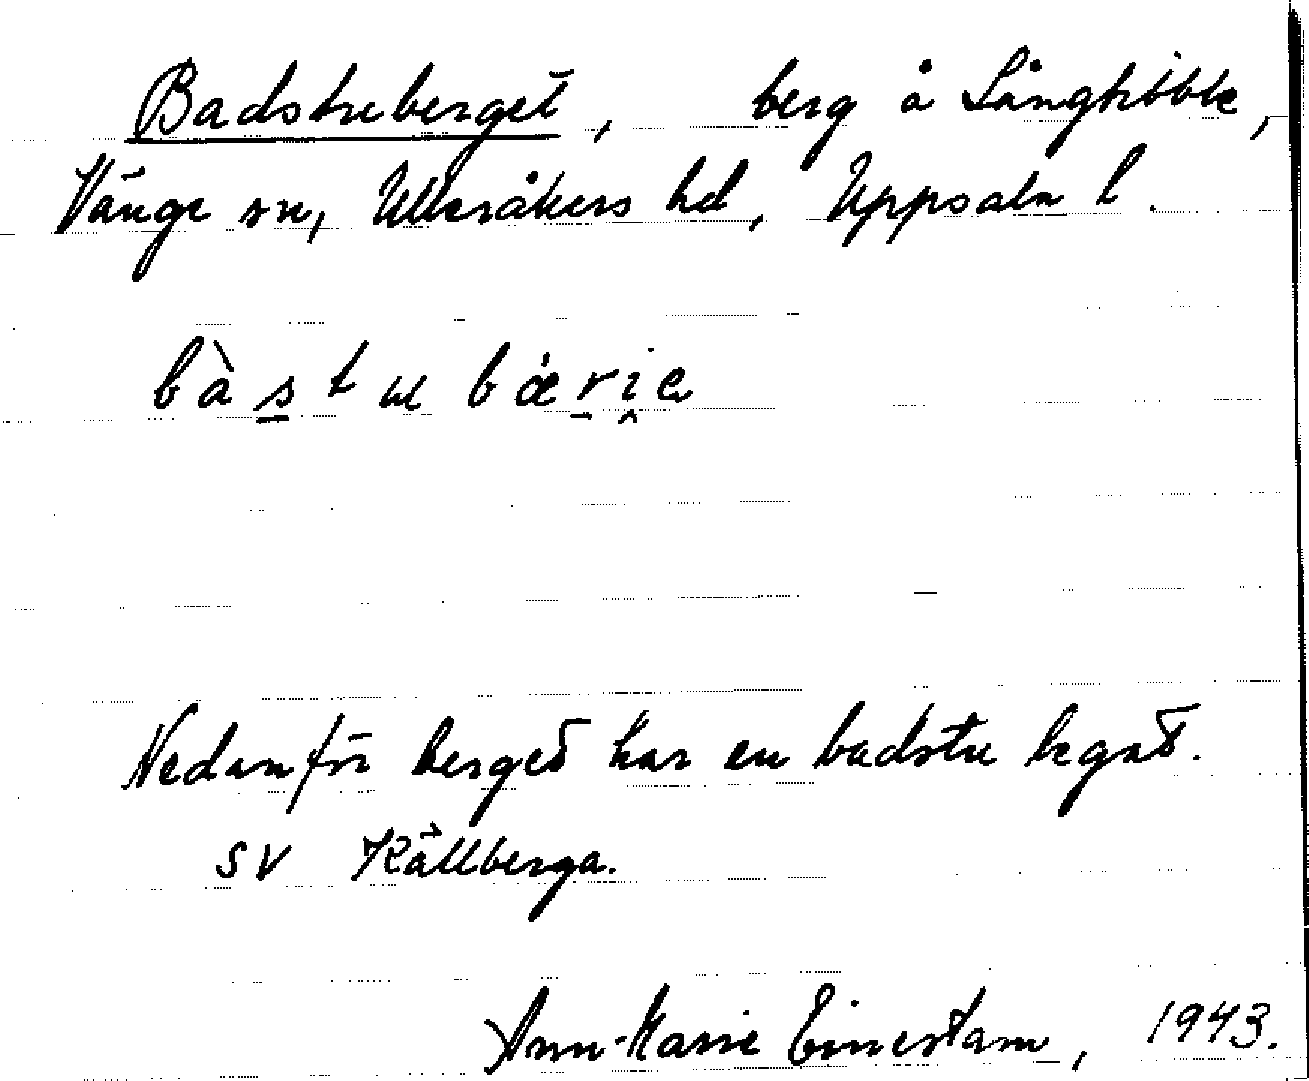 Badstuberget, berg å Långtibble,
Vänge sn, Ulleråkers hd, Uppsala l.
bàstu bæ̀rie
Nedanför berget har en badstu legat.
SV Källberga.
Ann-Marie Einestam, 1943.